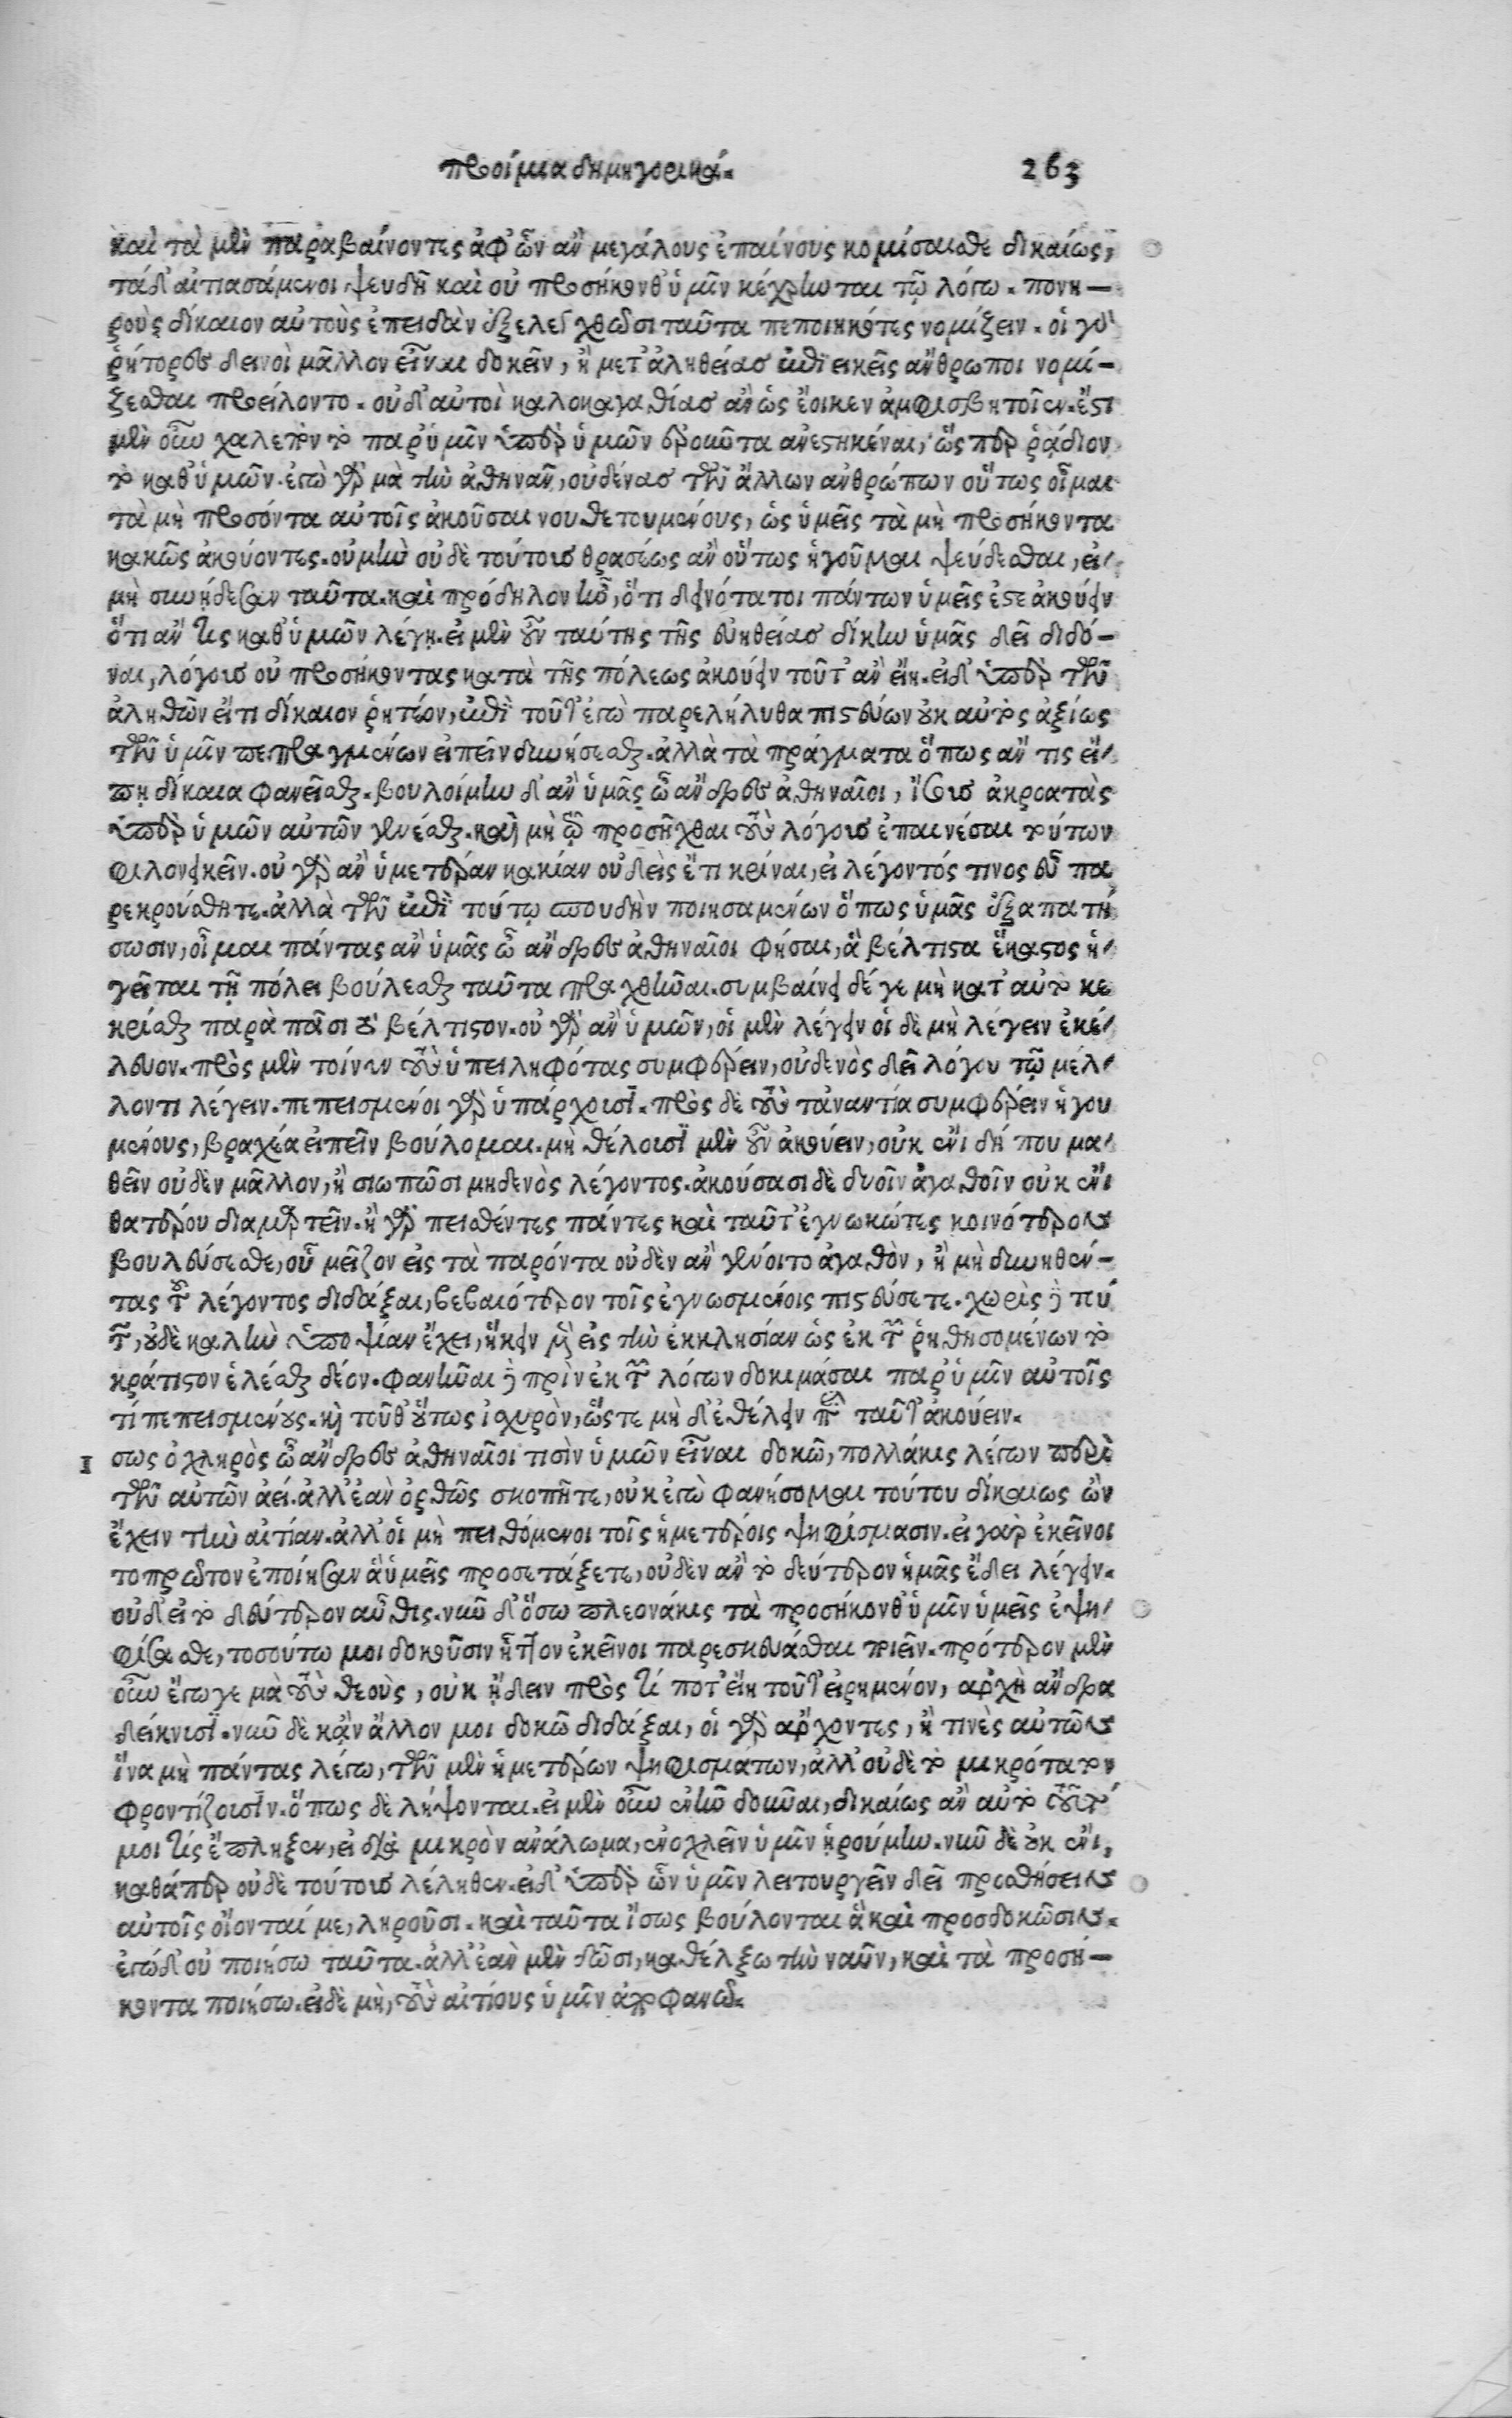 προοίμια δημηγορικά. 263
καὶ τὰ μὲν παραβαίνοντες ἀφ' ὧν ἂν μεγάλους ἐπαίνους κομίσαισθε δικαίως,
τάδ' αἰτιασάμενοι ψευδῆ καὶ οὐ προσήκονθ' ὑμῖν κέχρηνται τῷ λόγῳ. πονη-
ροὺς δίκαιον αὐτοὺς ἐπειδὰν ἐξελεγχθῶσι ταῦτα πεποιηκότες νομίζειν. οἱ γὰρ
ῥήτορες δεινοὶ μᾶλλον εἶναι δοκεῖν, ἢ μετ' ἀληθείας ἐπιεικεῖς ἄνθρωποι νομί-
ζεσθαι προείλοντο. οὐδ' αὐτοὶ καλοκαγαθίας ἂν ὡς ἔοικεν ἀμφισβητοῖεν. ἔστι
μὲν οὖν χαλεπὸν τὸ παρ' ὑμῖν ὑπὲρ ὑμῶν ἐροῦντα ἀνεστηκέναι, ὥσπερ ῥᾴδιον
τὸ καθ' ὑμῶν. ἐγὼ γὰρ μὰ τὴν ἀθηνᾶν, οὐδένας τῶν ἄλλων ἀνθρώπων οὕτως οἶμαι
τὰ μὴ προσόντα αὐτοῖς ἀκοῦσαι νουθετουμένους, ὡς ὑμεῖς τὰ μὴ προσήκοντα
κακῶς ἀκούοντες. οὐ μὴν οὐδὲ τούτους θρασέως ἂν οὕτως ἡγοῦμαι ψεύδεσθαι, εἰ
μὴ συνῄδεσαν ταῦτα. καὶ πρόδηλον ἦν, ὅτι δεινότατοι πάντων ὑμεῖς ἐστε ἀκούειν
ὅτι ἄν τις καθ' ὑμῶν λέγῃ. εἰ μὲν οὖν ταύτης τῆς εὐηθείας δίκην ὑμᾶς δεῖ διδό-
ναι, λόγους οὐ προσήκοντας κατὰ τῆς πόλεως ἀκούειν τοῦτ' ἂν εἴη. εἰδ' ὑπὲρ τῶν
ἀληθῶν εἴ τι δίκαιον ῥητέον, ἐπὶ τοῦτ' ἐγὼ παρελήλυθα πιστεύων οὐκ αὐτὸς ἀξίως
τῶν ὑμῖν πεπραγμένων εἰπεῖν δυνήσεσθαι. ἀλλὰ τὰ πράγματα ὅπως ἄν τις εἴ-
πῃ δίκαια φανεῖσθαι. βουλοίμην δ' ἂν ὑμᾶς ὦ ἄνδρες ἀθηναῖοι, ἴσους ἀκροατὰς
ὑπὲρ ὑμῶν αὐτῶν γενέσθαι. καὶ μὴ τῷ προσῆχθαι τοὺς λόγους ἐπαινέσαι τούτων
φιλονεικεῖν. οὐ γὰρ ἂν ὑμετέραν κακίαν οὐδεὶς ἔτι κρίναι, εἰ λέγοντός τινος εὖ πα
ρεκρούσθητε. ἀλλὰ τῶν ἐπὶ τούτῳ σπουδὴν ποιησαμένων ὅπως ὑμᾶς ἐξαπατή
σωσιν, οἶμαι πάντας ἂν ὑμᾶς ὦ ἄνδρες ἀθηναῖοι φῆσαι, ἃ βέλτιστα ἕκαστος ἡ-
γεῖται τῇ πόλει βούλεσθαι ταῦτα πραχθῆναι. συμβαίνει δέ γε μὴ κατ' αὐτὸ κε
κρίσθαι παρὰ πᾶσι τὸ βέλτιστον. οὐ γὰρ ἂν ὑμῶν, οἱ μὲν λέγειν οἱ δὲ μὴ λέγειν ἐκέ-
λευον. πρὸς μὲν τοίνυν τοὺς ὑπειληφότας συμφέρειν, οὐδενὸς δεῖ λόγου τῷ μέλ-
λοντι λέγειν. πεπεισμένοι γὰρ ὑπάρχουσι. πρὸς δὲ τοὺς τἀναντία συμφέρειν ἡγου
μένους, βραχέα εἰπεῖν βούλομαι. μὴ θέλουσι μὲν οὖν ἀκούειν, οὐκ ἔνι δή που μα-
θεῖν οὐδὲν μᾶλλον, ἢ σιωπῶσι μηδενὸς λέγοντος. ἀκούσασι δὲ δυοῖν ἀγαθοῖν οὐκ ἔνι
θατέρου διαμαρτεῖν. ἢ γὰρ πεισθέντες πάντες καὶ ταῦτ' ἐγνωκότες κοινότερον
βουλεύσεσθε, οὗ μεῖζον εἰς τὰ παρόντα οὐδὲν ἂν γένοιτο ἀγαθὸν, ἢ μὴ δυνηθέν-
τας τοῦ λέγοντος διδάξαι, βεβαιότερον τοῖς ἐγνωσμένοις πιστεύσετε. χωρὶς δὲ τού
των, οὐδὲ καλὴν ὑποψίαν ἔχει, ἥκειν μὲν εἰς τὴν ἐκκλησίαν ὡς ἐκ τῶν ῥηθησομένων τὸ
κράτιστον ἑλέσθαι δέον. φανῆναι δὲ πρὶν ἐκ τῶν λόγων δοκιμάσαι παρ' ὑμῖν αὐτοῖς
τί πεπεισμένους. καὶ τοῦθ' οὕτως ἰσχυρὸν, ὥστε μὴ δ' ἐθέλειν παρὰ ταῦτ' ἀκούειν.
Iσως ὀχληρὸς ὦ ἄνδρες ἀθηναῖοι τισὶν ὑμῶν εἶναι δοκῶ, πολλάκις λέγων περὶ
τῶν αὐτῶν ἀεί. ἀλλ' ἐὰν ὀρθῶς σκοπῆτε, οὐκ ἐγὼ φανήσομαι τούτου δίκαιως ὢν
ἔχειν τὴν αἰτίαν. ἀλλ' οἱ μὴ πειθόμενοι τοῖς ἡμετέροις ψηφίσμασιν. εἰ γὰρ ἐκεῖνοι
τοπρῶτον ἐποίησαν ἃ ὑμεῖς προσετάξετε, οὐδὲν ἂν τὸ δεύτερον ἡμᾶς ἔδει λέγειν.
οὐδ' εἰ τὸ δεύτερον αὖθις. νῦν δ' ὅσω πλεονάκις τὰ προσήκονθ' ὑμῖν ὑμεῖς ἐψη-
φίσασθε, τοσούτω μοι δοκοῦσιν ἧττον ἐκεῖνοι παρεσκευάσθαι ποιεῖν. πρότερον μὲν
οὖν ἔγωγε μὰ τοὺς θεοὺς, οὐκ ᾔδειν πρὸς τί ποτ' εἴη τοῦτ' εἰρημένον, ἀρχὴ ἄνδρα
δείκνυσι. νῦν δὲ κἂν ἄλλον μοι δοκῶ διδάξαι, οἱ γὰρ ἄρχοντες, ἤ τινὲς αὐτῶν
ἵνα μὴ πάντας λέγω, τῶν μὲν ἡμετέρων ψηφισμάτων, ἀλλ' οὐδὲ τὸ μικρότατον
φροντίζουσιν. ὅπως δὲ λήψονται. εἰ μὲν οὖν ἐνῆν δοῦναι, δικαίως ἂν αὐτὸ τοῦτό
μοι τίς ἔπληξεν, εἰ διὰ μικρὸν ἀνάλωμα, ἐνοχλεῖν ὑμῖν ᾑρούμην. νῦν δὲ οὐκ ἔνι,
καθάπερ οὐδὲ τούτους λέληθεν. εἰδ' ὑπὲρ ὧν ὑμῖν λειτουργεῖν δεῖ προσθήσειν
αὐτοῖς οἴονταί με, ληροῦσι. καὶ ταῦτα ἴσως βούλονται ἃ καὶ προσδοκῶσιν.
ἐγὼ δ' οὐ ποιήσω ταῦτα. ἀλλ' ἐὰν μὲν δῶσι, καθέλξω τὴν ναῦν, καὶ τὰ προσή-
κοντα ποιήσω. εἰ δὲ μὴ, τοὺς αἰτίους ὑμῖν ἀποφανῶ.